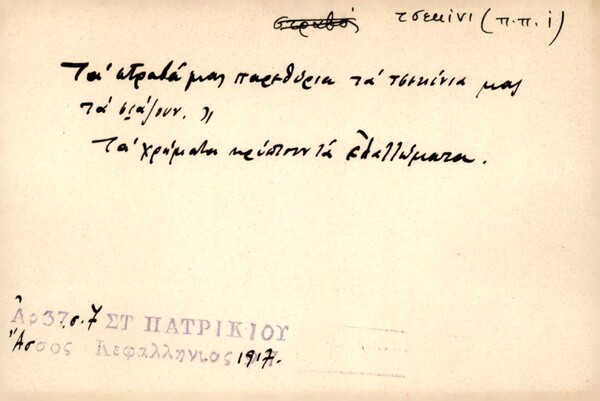 στραβός τσεκίνι (π.π. ί)
Τα στραβά μας παρεθύρια τα τσεκίνια μας
τα σιάζουν. »
Τα χρήματα κρύπτουν τά ελαττώματα.
Αρ 37 σ. 7 ΣΤ ΠΑΤΡΙΚΙΟΥ
Άσσος Κεφαλληνίας 1917.